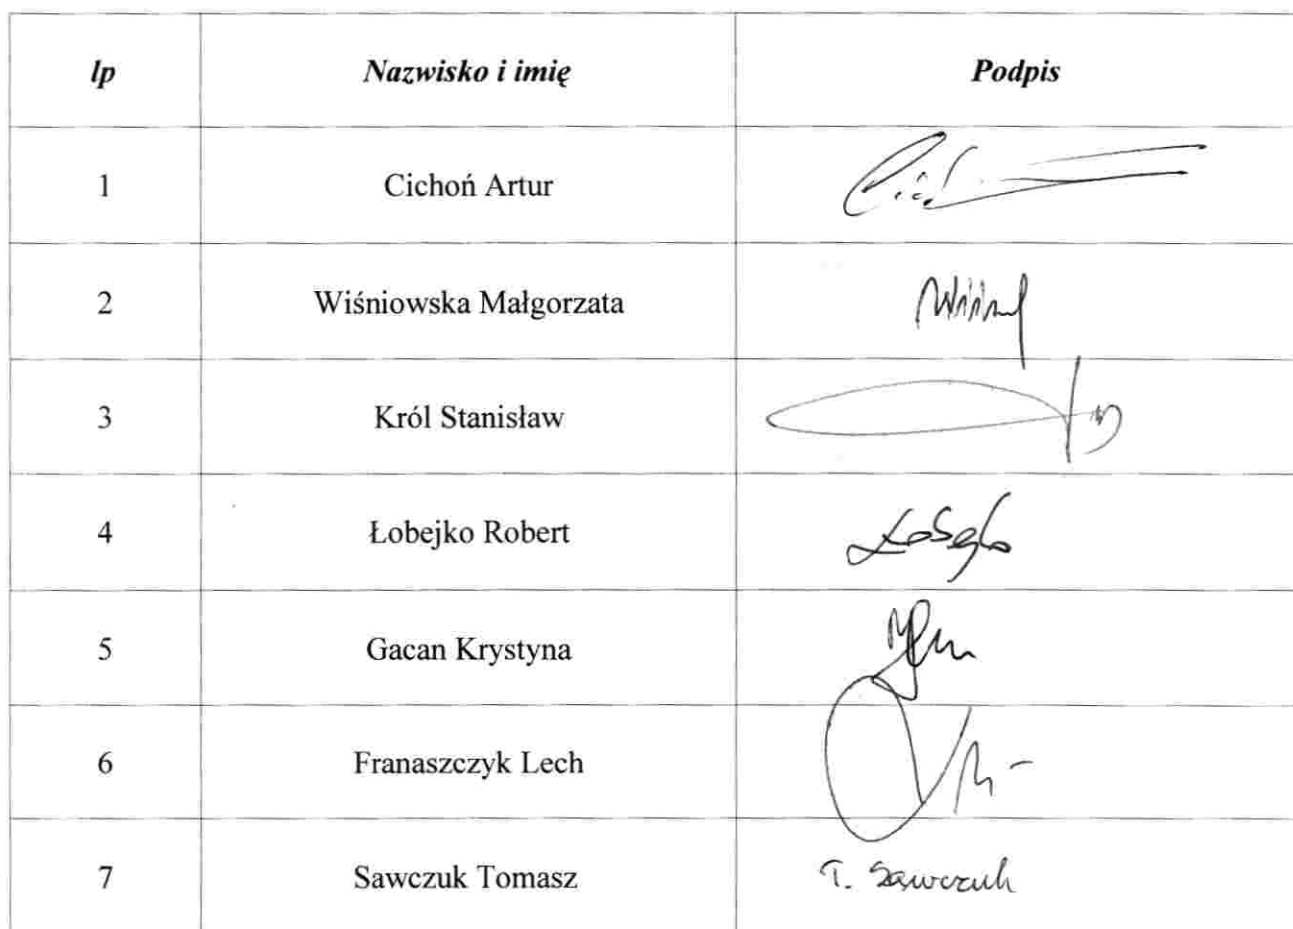 lp Nazwisko i imię Podpis
1 Cichoń Artur
2 Wiśniowska Małgorzata
3 Król Stanisław
4 Łobejko Robert
5 Gacan Krystyna
6 Franaszczyk Lech
7 Sawczuk Tomasz T. Sawczuk